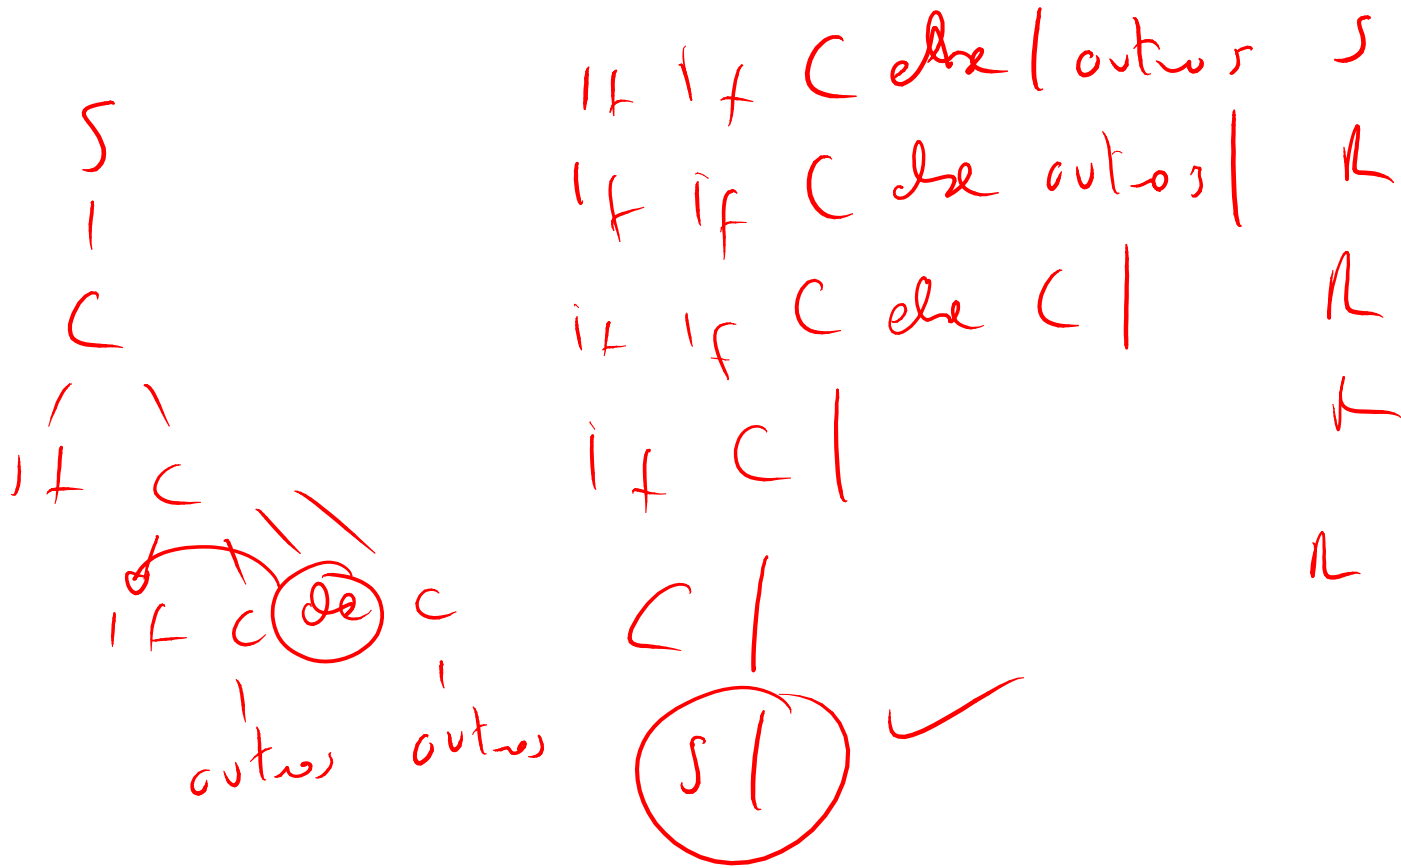 S
C
if C
if C else C
outros outros
if if C else | outros S
if if C else outros | R
if if C else C | R
if C | R
C | R
S |